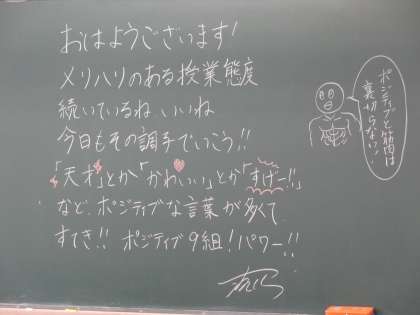 おはようございます!
メリハリのある授業態度
続いているね、いいね
今日もその調子でいこう!!
「天才」とか「かわいい」とか「すげー!!」
など、ポジティブな言葉が多くて
すてき!! ポジティブ9組!パワー!!
ポジティブと筋肉は
裏切らない!!